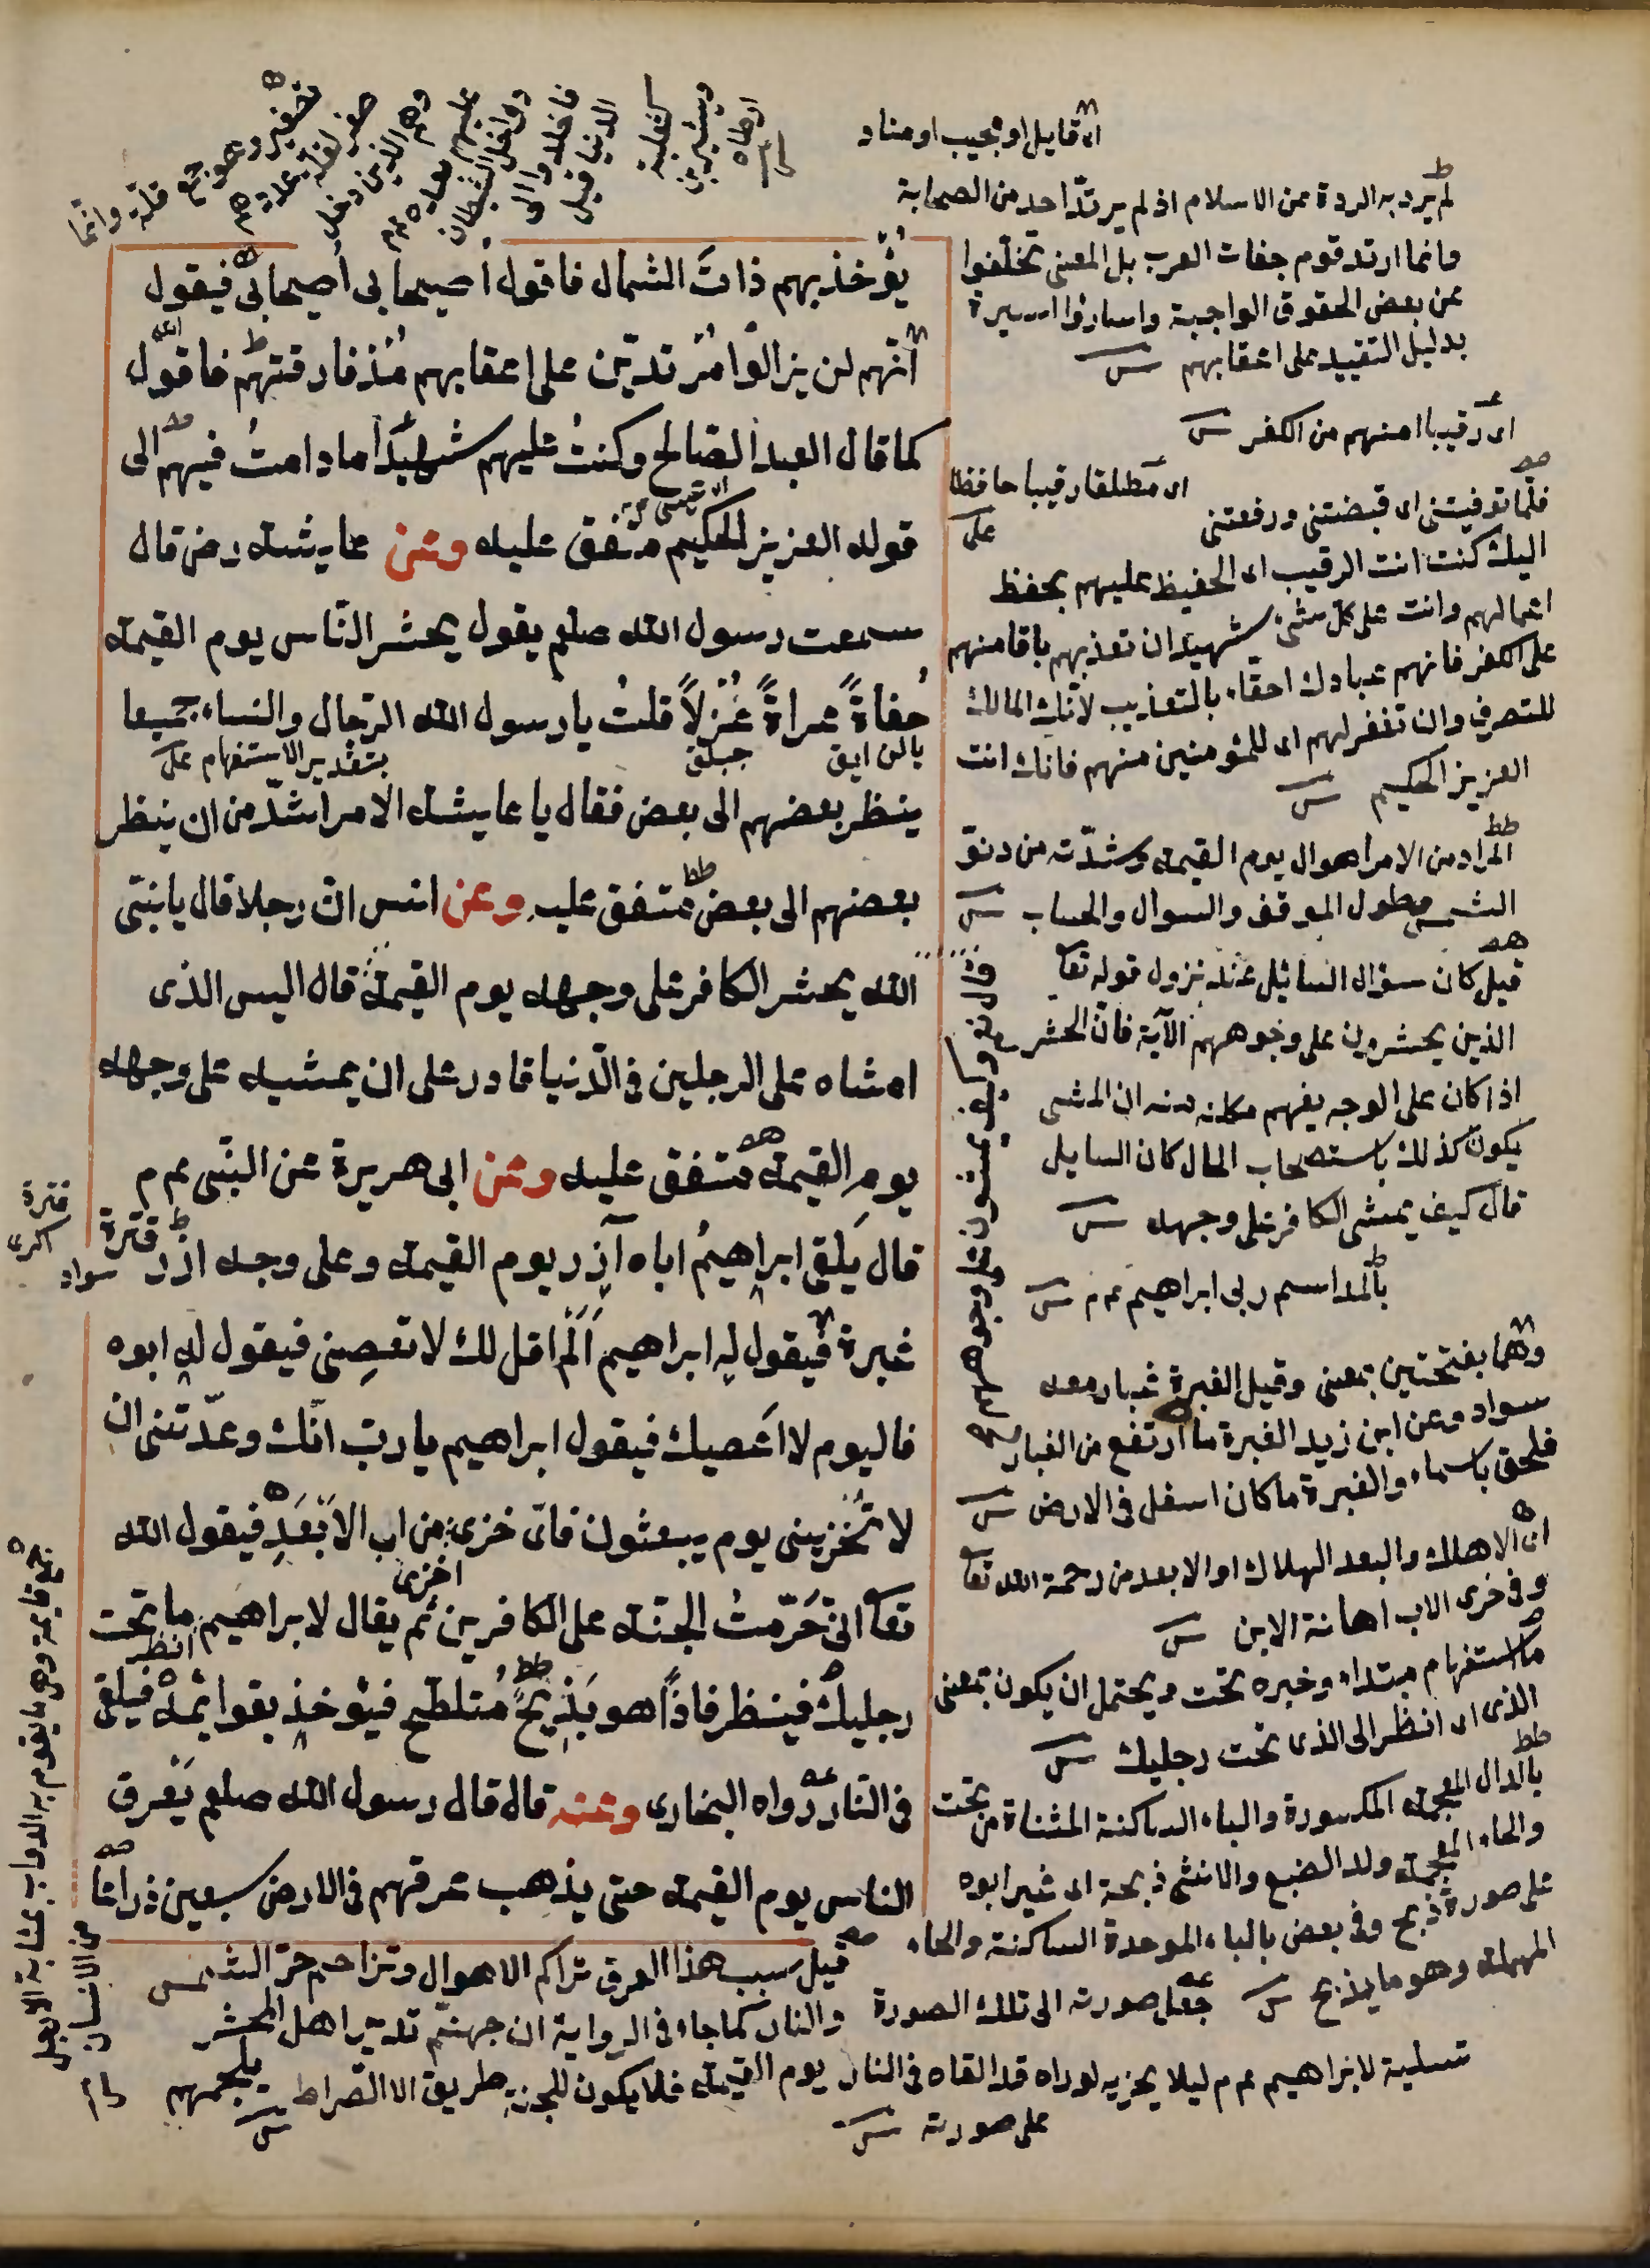 يُؤخذ بهم ذاتَ الشمال فاقول أصيحابى أصيحابى فيقول
انّهم لن يزالوا مُرتدّين على اعقابهم مُنذ فارقتهم فاقول
كما قال العبد الصّالح وكنتُ عليهم شهيدًا ما دامتُ فيهم الى
قوله العزيز الحكيم متفق عليه وعن عايشه رض قال
سمعت رسول الله صلعم يقول يحشر النّاس يوم القيمه
حُفاةً عراةً غُرْلاً قلتُ يا رسول الله الرّجال والنساء جميعا
ينظر بعضهم الى بعض فقال يا عايشه الامر اشدّ من ان ينظر
بعضهم الى بعض متفق عليه وعن انس انّ رجلا قال يا نبىّ
الله يحشر الكافر على وجهه يوم القيمة قال اليس الذى
امشاه على الرجلين فى الدّنيا قادر على ان يمشيه على وجهه
يوم القيمه متفق عليه وعن ابى هريرة عن النبّى عم م
قال يَلقى ابراهيمُ اباه آزر يوم القيمه وعلى وجه ازر قترة
غبرة فيقول له ابراهيم اَلَم اقل لك لا تعصِنى فيقول له ابوه
فاليوم لا اَعصيك فيقول ابراهيم يا ربّ انّك وعدّتنى ان
لا تُخزينى يوم يبعثون فاىّ خزى من اب الاَبعَدِ فيقول الله
تعا انّى حَرّمتُ الجنّه على الكافرين ثم يقال لابراهيم ما تحت
رجليك فينظر فاذًا هو بَذِيخٍ مُتلطّخ فيؤخذ بقوائمه فيلقى
فى النّار رواه البخارى وعنه قال قال رسول الله صلعم يَعرق
الناس يوم القيمه حتى يذهب عرقهم فى الارض سبعين ذراعًا
بتقدير الاستفهام
سواد
اى قايل او مجيب او مناد
لم يرد به الردة عن الاسلام اذ لم يرتدّ احد من الصحابة
وانما ارتد قوم جفات العرب بل المعنى تخلّفوا
عن بعض الحقوق الواجبة واساؤا السيرة
بدليل التقييد على اعقابهم
اى رقيبا امنهم من الكفر
اى مطلقا رقيبا حافظا
فلمّا توفيتنى اى قبضتنى ورفعتنى
اليك كنت انت الرقيب اى الحفيظ عليهم بحفظ
اعمالهم وانت على كل شئ شهيد ان تعذبهم باقامتهم
على الكفر فانهم عبادك احقّاء بالتعذيب لانّك المالك
للتصرف وان تغفر لهم اى للمؤمنين منهم فانك انت
العزيز الحكيم
المراد من الامر اهوال يوم القيمه وشدّته من دنوّ
الشمس وطول الموقف والسوال والحساب
قيل كان سؤال السائل عند نزول قوله تعا
الذين يحشرون على وجوههم الآية فانّ الحشر
اذا كان على الوجه يفهم مكانه منه ان المشى
يكون كذلك باستصحاب الحال كان السايل
قال كيف يمشى الكافر على وجهه
بالمد اسم ربى ابراهيم عم م
وهما بفتحتين بمعنى وقيل الغبرة غبار معه
سواد وعن ابن زيد الغبرة ما ارتفع من الغبار
فلحق بالسماء والغبرة ما كان اسفل فى الارض
اى الاهلك والبعد الهلاك او الابعد من رحمة الله تعا
وفى خزى الاب اهانة الابن
ما استفهام مبتداء وخبره تحت ويحتمل ان يكون بمعنى
الذى اى انظر الى الذى تحت رجليك
بالذال المعجمه المكسورة والياء الساكنة المثناة من تحت
والخاء المعجمه ولد الضبع والانثى ذيخة اى غير ابوه
على صورة ذيخ وفى بعض بالباء الموحدة الساكنة والحاء
المهملة وهو ما يذبح
جعل صورته الى تلك الصورة
تسلية لابراهيم عم م ليلا يحزيه لو راه قد القاه فى النار
على صورته
قيل سبب هذا العرق تراكم الاهوال وتزاحم حرّ الشمس
والنار كما جاء فى الرواية ان جهنّم تدير اهل المحشر
يوم القيمه فلا يكون للجنة طريق الا الصّراط يلجمهم